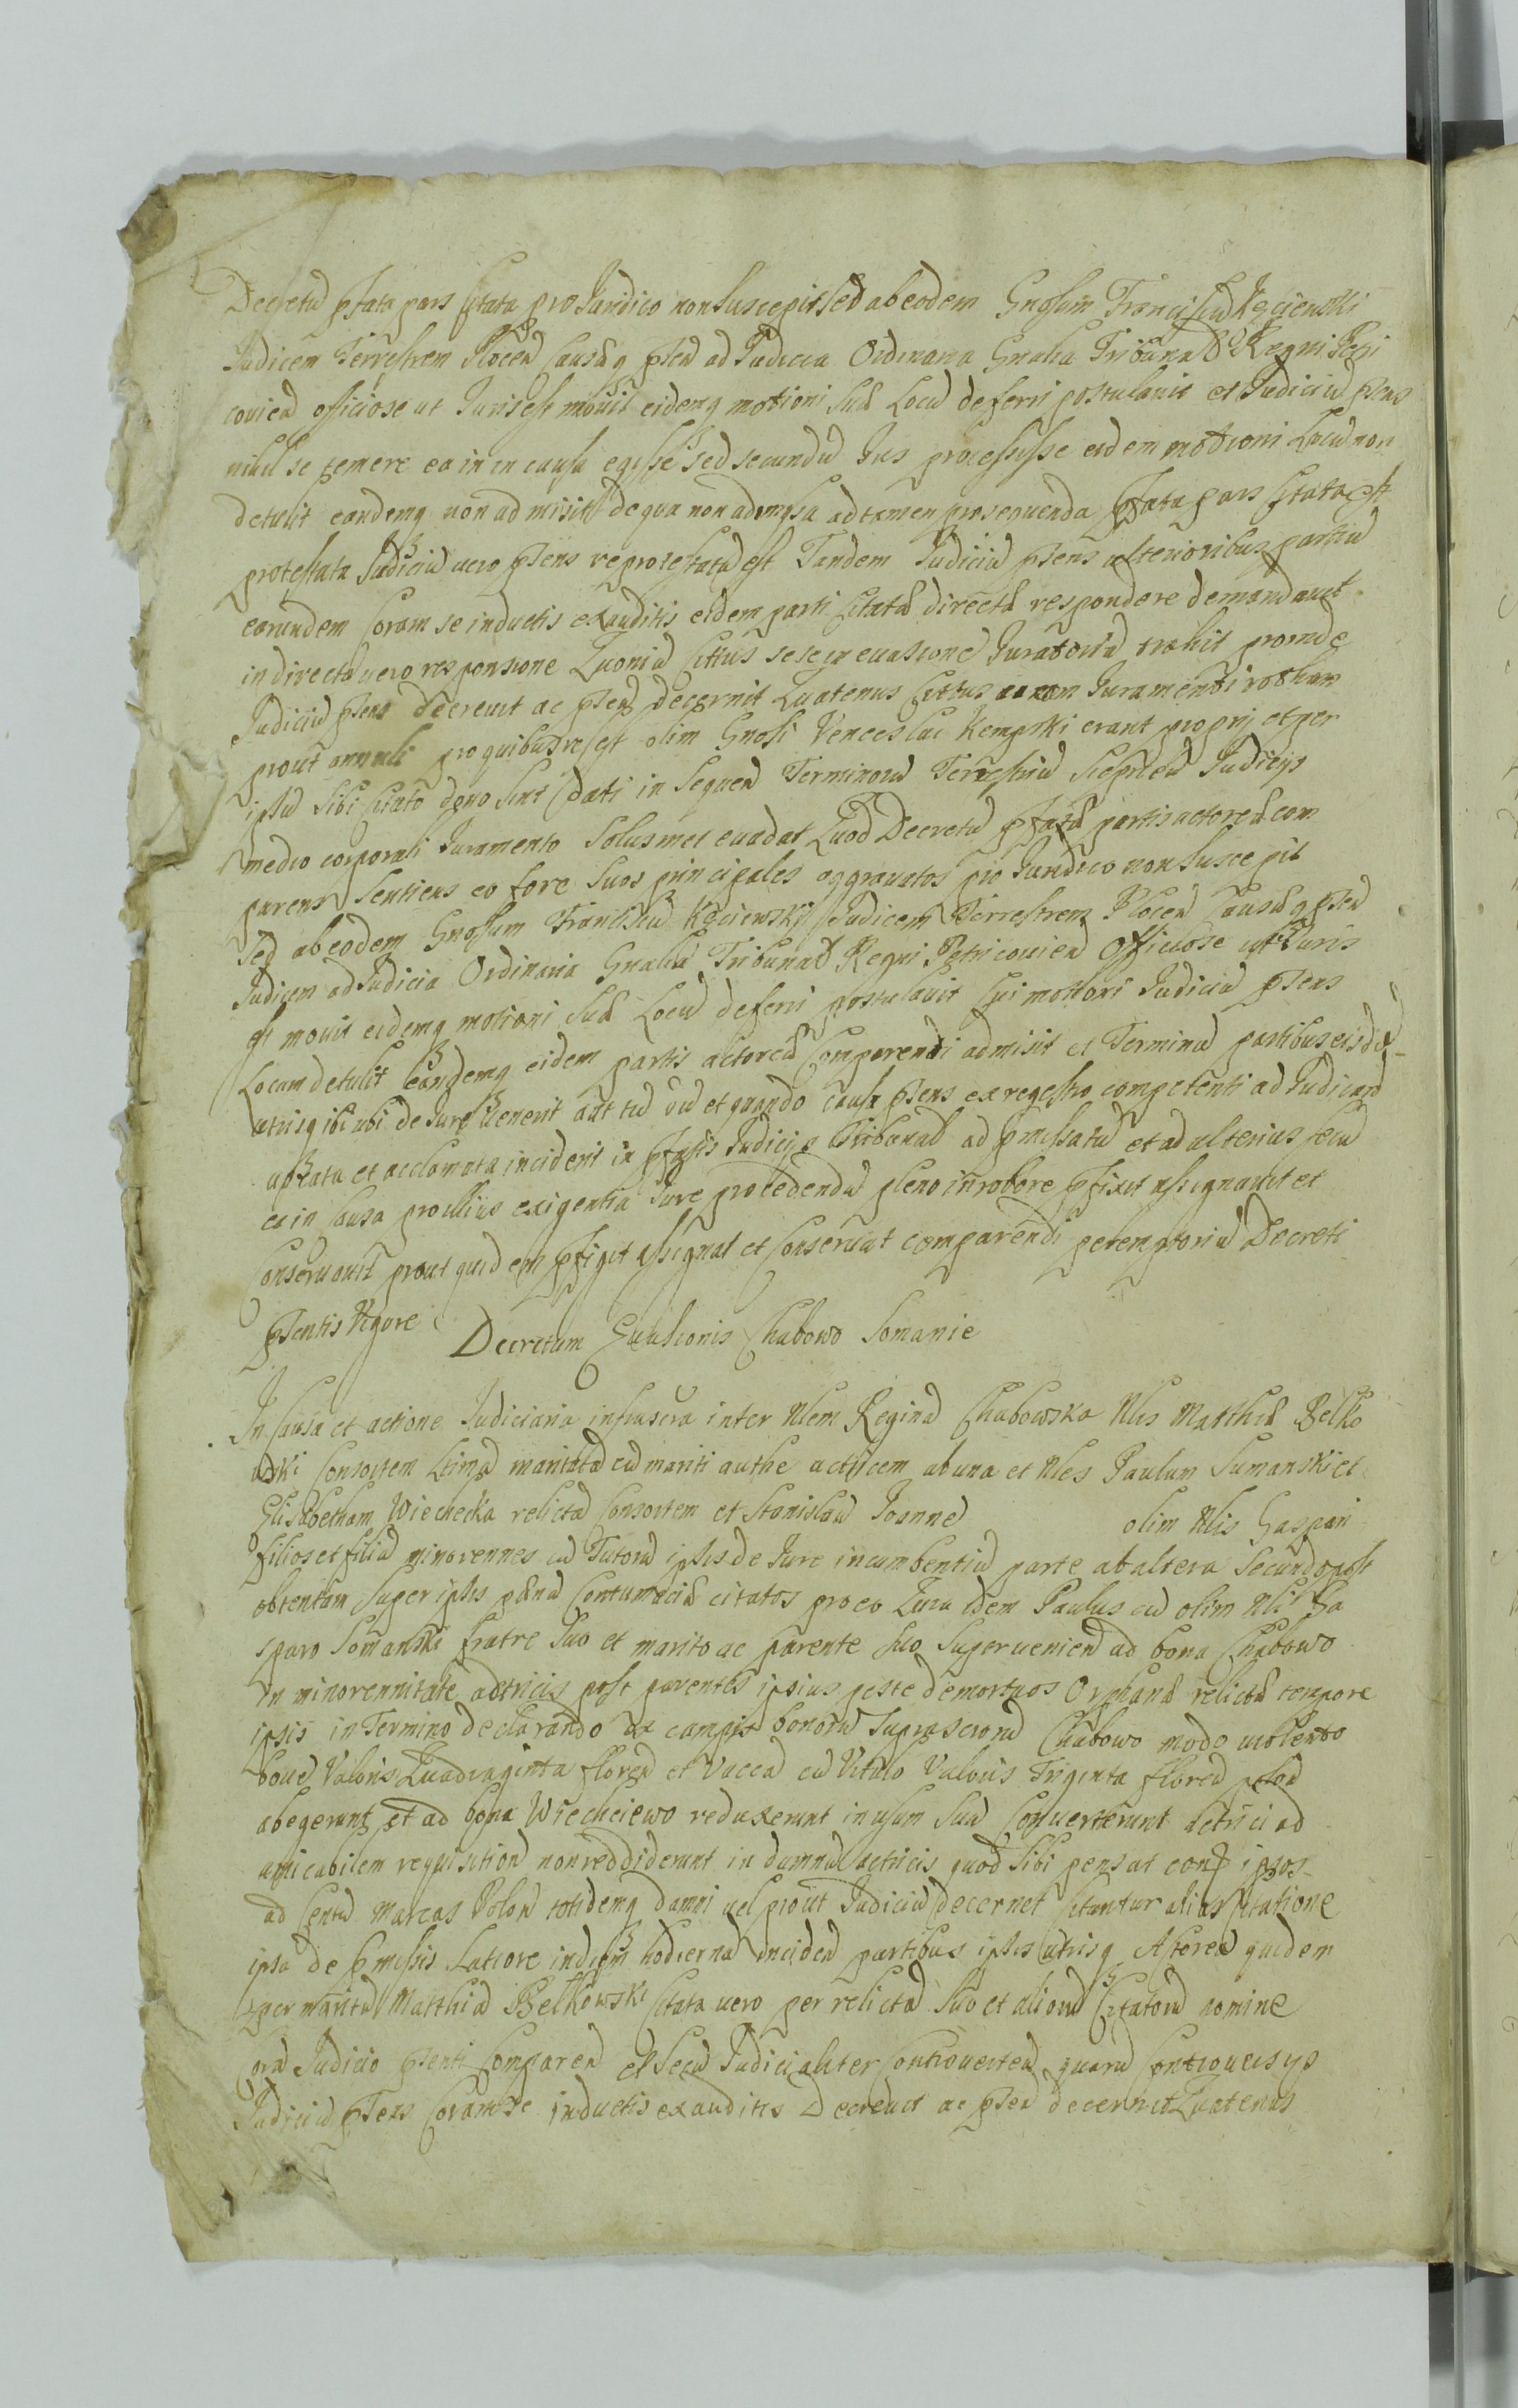 Decretũ pſata pars Citata pro Juridico non Suscepit Sed ab eodem Gnoſum Franciſcũ Kęciewſki
Judicem Terreſtrem Plocen̄ Cauſãq pſen̄ ad Judicia Ordinaria Gnalia Tribunal Regni Petri
covien̄ officiose ut Juris eſt movit eidemq motioni Suæ Locũ deferri postulavit et Judiciũ pſens
nihil se temere ea in in cauſa egiſſe Sed secundũ Jus proceſsiſse eidem motioni Locũ non
detulit eandemq non admisit de qua non admiſsa ad tamen prosequenda pſata pars Citata eſt
proteſtata Judiciũ vero pſens reproteſtatũ eſt Tandem Judiciũ pſens ulterioribus partiũ
earundem Coram se inductis exauditis eidem parti Citatæ directæ respondere demandavit
in directa vero responsione Quoniã Cittus sese in evasionẽ Juratoriã trahit proinde
Judiciũ pſens decrevit ac pſen̄ decernit Quatenus Cittus Juramenti rotham
prout pro quibus res eſt olim Gnoſi Venceslai Kempſki erant proprij et per
ipſũ Sibi Citato dono Sint dati in Sequen̄ Terminorũ Terreſtriũ Sieprcen̄ Judicijs
medio corporali Juramento Solusmet evadat Quod Decretũ pſatæ partis actoreæ com
parens Sentiens eo fore Suos principales aggravatos pro Juridico non Suscepit
Sed ab eodem Gnoſum Franciſcũ Kęciewſki Judicem Terreſtrem Plocen̄ Cauſãq pſen̄
Judium ad Judicia Ordinaria Gnalia Tribunal Regni Petricovien̄ Officiose ut Juris
eſt movit eidemq motioni Suæ Locũ deferri postulavit Cui motioni Judiciũ pſens
Locum detulit Eandemq eidem partis actoreæ Comparenti admisit et Terminũ partibus eisdẽ
utrisq ibi ubi de Jure Venerit aut tũ cũ et quando cauſa pſens ex regeſtro competenti ad Judicand̄
aptata et acclamata inciderit in pſatis Judicijs Tribunal ad pmiſsatũ et ad ulterius secũ
ea in Causa pro illius exigentia Jure procedendũ pleno in robore pfixit aſsignavit et
Conservavit prout quidem pfigit aſsignat et Conservat comparendi peremptoriũ Decreti
pſentis Vigore
Decretum Evasionis Chabowo Somanie
In Causa et actione Judiciaria infrascra inter Nlem Reginã Chabowska Nlis Matthiæ Belko
wski Consortem Ltimã maritatã cũ mariti authe actricem ab una et Nles Paulum Sumanski et
Elisabetham Wiechecka relictã Consortem et Stanislaũ Joannẽ olim Nlis Gaspari
filios et filiã minorennes cũ Tutorũ ipſis de Jure incumbentiũ parte ab altera Secundo poſt
obtentam Super ipſis pænã Contumaciæ citatos pro eo Quia idem Paulus cũ olim Nli Ga
sparo Somanski fratre Suo et marito ac parente Suo Supervenien̄ ad bona Chabowo
in minorennitate actricis poſt parentes ipsius peste demortuos Orphanæ relictæ tempore
ipsis in Termino declarando ex campis bonorũ Suprascrorũ Chabowo modo violento
bovẽ Valoris Quadraginta floren̄ et Vaccã cũ Vitulo Valoris Triginta floren̄ polon̄
abegerunt et ad bona Wiecheiewo reduxerunt in uſum Suũ Converterunt actrici ad
amicabilem requisitionẽ non reddiderunt in damnũ actricis quod Sibi pensat conß ipsos
ad Centũ Marcas Polon̄ totidemq damni vel prout Judiciũ decernet Citantur alias Citatione
ipsa de pmiſsis Latiore in diem hodiernã inciden̄ partibus ipſis utrisq Actorea quidem
per maritũ Matthiã Belkowski Citata vero per relictã Suo et aliorũ Citatorũ nomine
orã Judicio pſenti Comparen̄ et Secũ Judicialiter Controverten̄ quarũ Controversijs
Judiciũ pſens Coram se inductis exauditis Decrevit ac pſen̄ decernit Quatenus